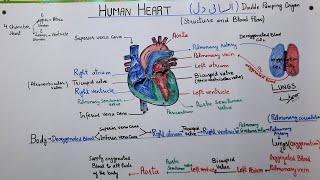 HUMAN HEART (انسانی دل) Double Pumping Organ
(Structure and Blood Flow)
4 Chamber Heart
Superior vena cava
Aorta
Pulmonary Artery
Deoxygenated Blood
Pulmonary vein
Left atrium
Right atrium
Bicuspid valve
Tricuspid valve
LUNGS
Right ventricle
Left ventricle
Pulmonary Semilunar valve
Aortic Semilunar valve
Pericardium
Inferior vena cava
Superior vena cava
Body
Deoxygenated Blood
Right atrium
Tricuspid valve
Right ventricle
Pulmonary Semilunar valve
Inferior vena cava
Lungs
Supply oxygenated Blood to all Parts of the body
Aorta
Left ventricle
Bicuspid Valve
Left Atrium
Pulmonary vein